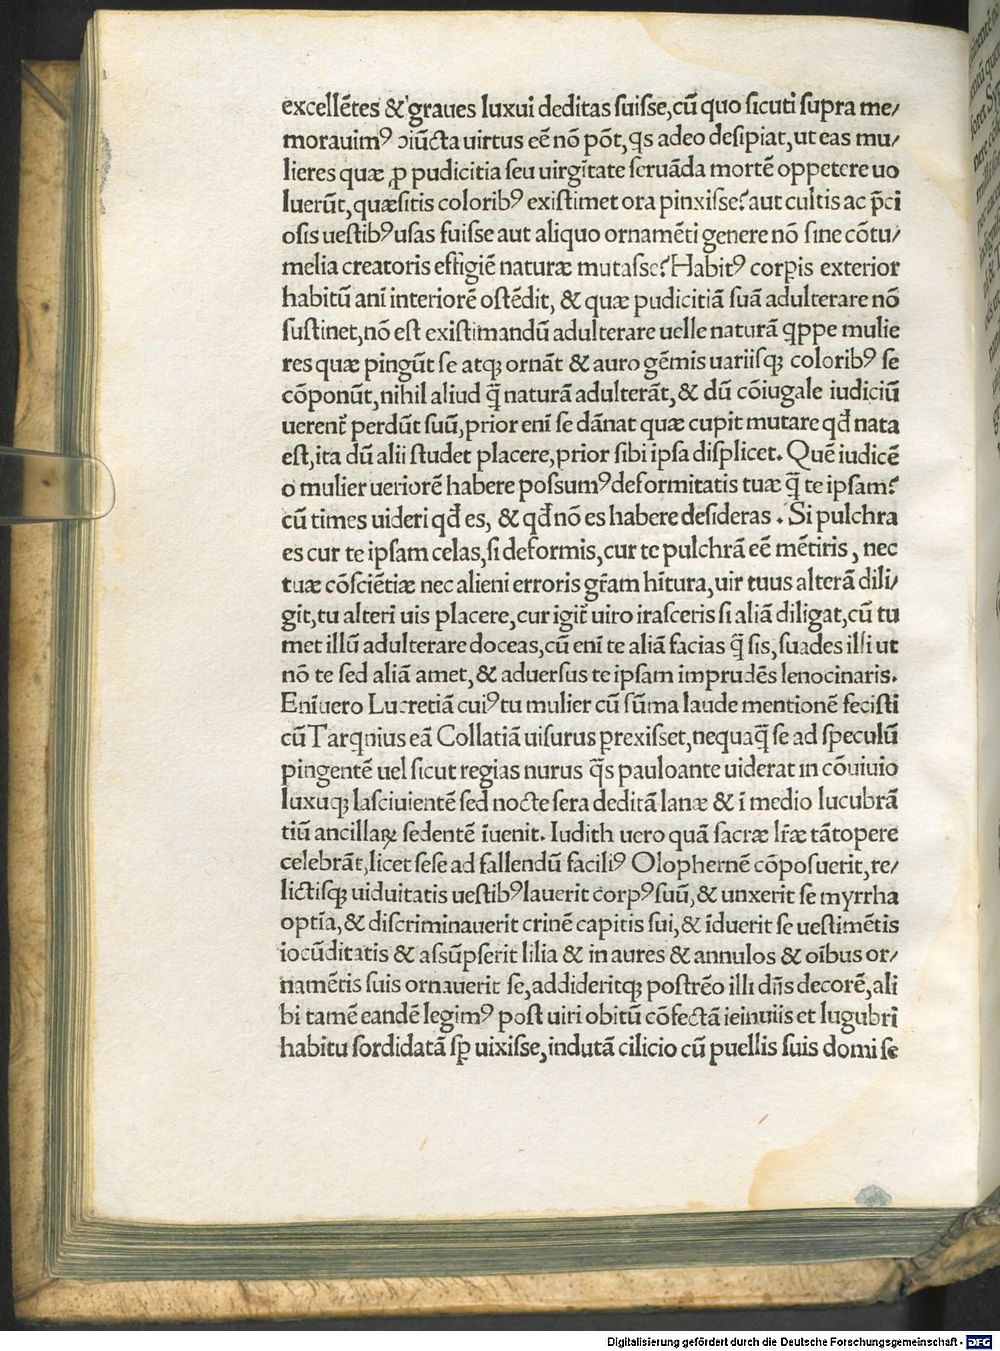 excellētes & graues luxui deditas fuisse, cū quo sicuti supra me/
morauimꝰ ↄiūcta uirtus eē nō pōt, qs adeo desipiat, ut eas mu/
lieres quæ ꝓ pudicitia seu uirgītate seruāda mortē oppetere uo
luerūt, quæsitis coloribꝰ existimet ora pinxisse? aut cultis ac p̄ci
osis uestibꝰ usas fuisse aut aliquo ornamēti genere nō sine cōtu/
melia creatoris effigiē naturæ mutasse? Habitꝰ corꝑis exterior
habitū anī interiorē ostēdit, & quæ pudicitiā suā adulterare nō
sustinet, nō est existimandū adulterare uelle naturā qppe mulie
res quæ pingūt se atqꝫ ornāt & auro gēmis uariisqꝫ coloribꝰ se
cōponūt, nihil aliud q̄ naturā adulterāt, & dū cōiugale iudiciū
uerent̄ perdūt suū, prior enī se dānat quæ cupit mutare qđ nata
est, ita dū alii studet placere, prior sibi ipsa displicet. Quē iudicē
o mulier ueriorē habere possumꝰ deformitatis tuæ q̄ te ipsam?
cū times uideri qđ es, & qđ nō es habere desideras. Si pulchra
es cur te ipsam celas, si deformis, cur te pulchrā eē mētiris, nec
tuæ cōsciētiæ nec alieni erroris gr̄am hītura, uir tuus alterā dili/
git, tu alteri uis placere, cur igit̄ uiro irasceris si aliā diligat, cū tu
met illū adulterare doceas, cū enī te aliā facias q̄ sis, suades illi ut
nō te sed aliā amet, & aduersus te ipsam imprudēs lenocinaris.
Enīuero Lucretiā cuiꝰ tu mulier cū sūma laude mentionē fecisti
cū Tarqnius eā Collatiā uisurus ꝑrexisset, nequaq̄ se ad speculū
pingentē uel sicut regias nurus q̄s pauloante uiderat in cōuiuio
luxuqꝫ lasciuientē sed nocte sera deditā lanæ & ī medio lucubrā
tiū ancillaꝝ sedentē īuenit. Iudith uero quā sacræ lr̄æ tātopere
celebrāt, licet sese ad fallendū faciliꝰ Olophernē cōposuerit, re/
lictisqꝫ uiduitatis uestibꝰ lauerit corpꝰ suū, & unxerit se myrrha
optīa, & discriminauerit crinē capitis sui, & īduerit se uestimētis
iocūditatis & assūpserit lilia & in aures & annulos & oībus or/
namētis suis ornauerit se, addideritqꝫ postrēo illi dn̄s decorē, ali
bi tamē eandē legimꝰ post uiri obitū cōfectā ieinuiis et lugubri
habitu sordidatā sꝑ uixisse, indutā cilicio cū puellis suis domi se
Digitalisierung gefördert durch die Deutsche Forschungsgemeinschaft - DFG